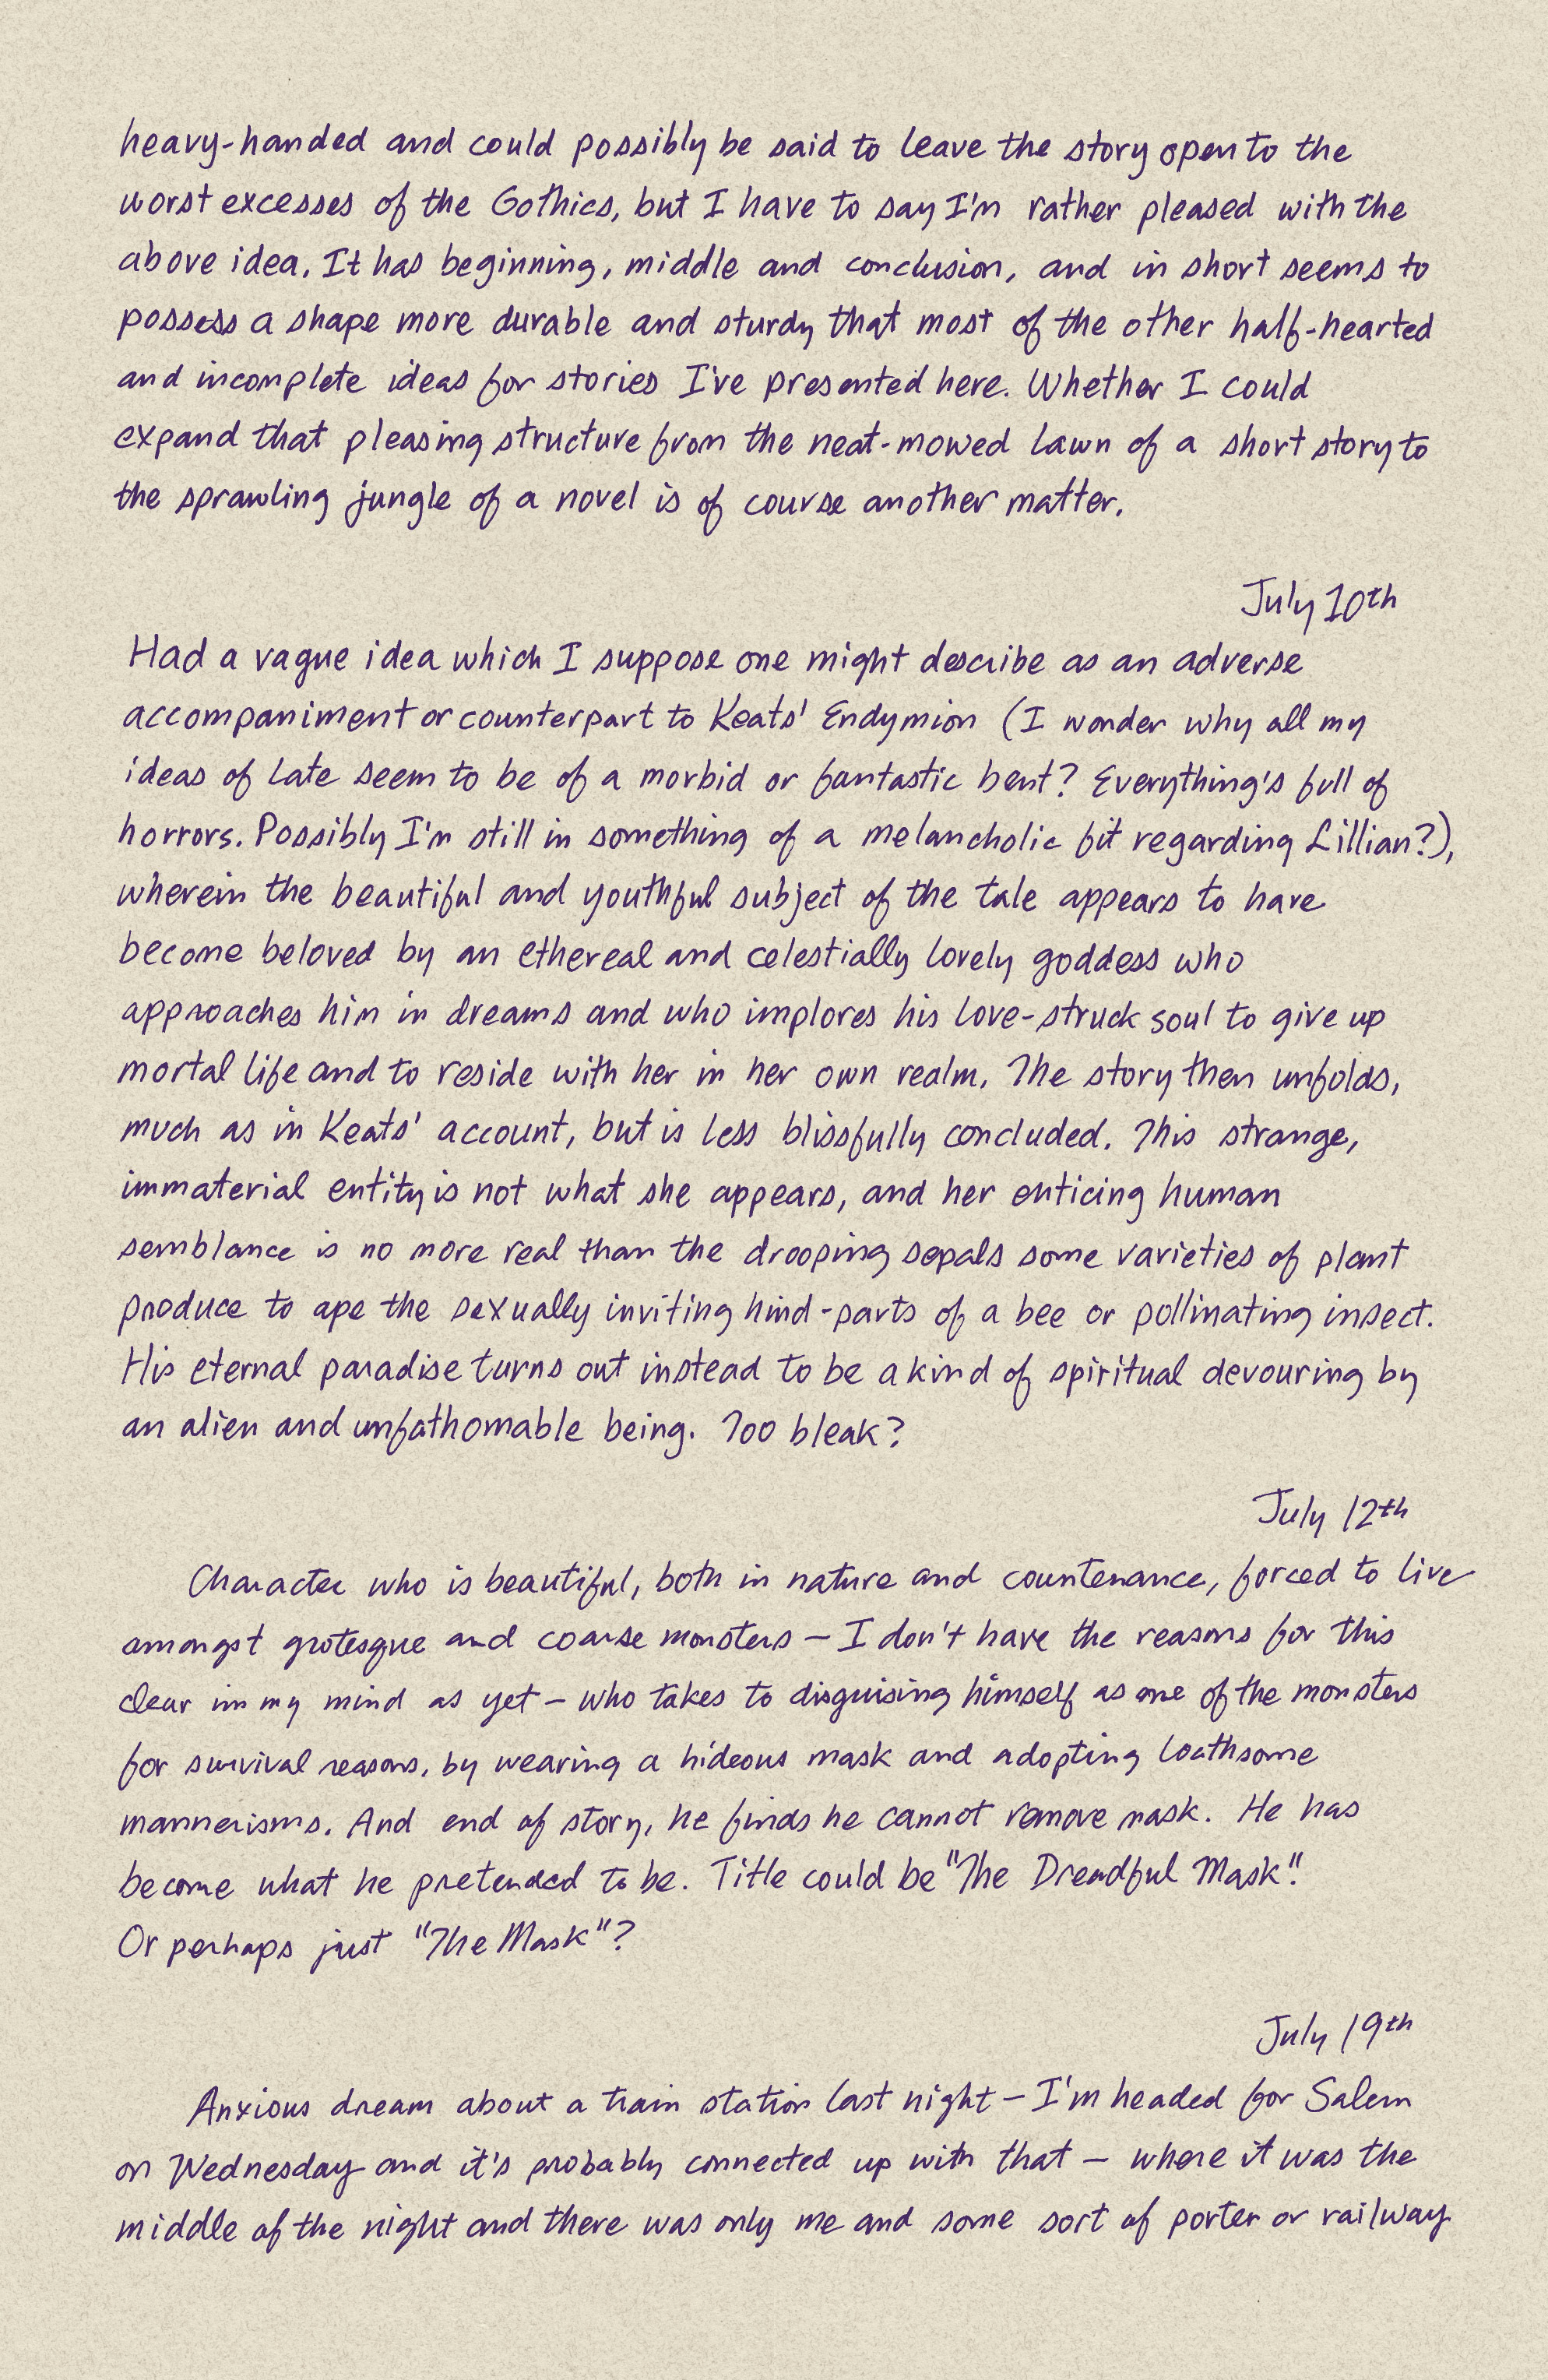 heavy-handed and could possibly be said to leave the story open to the
worst excesses of the Gothics, but I have to say I'm rather pleased with the
above idea. It has beginning, middle and conclusion, and in short seems to
possess a shape more durable and sturdy that most of the other half-hearted
and incomplete ideas for stories I've presented here. Whether I could
expand that pleasing structure from the neat-mowed lawn of a short story to
the sprawling jungle of a novel is of course another matter.
July 10th
Had a vague idea which I suppose one might describe as an adverse
accompaniment or counterpart to Keats' Endymion (I wonder why all my
ideas of late seem to be of a morbid or fantastic bent? Everything's full of
horrors. Possibly I'm still in something of a melancholic fit regarding Lillian?),
wherein the beautiful and youthful subject of the tale appears to have
become beloved by an ethereal and celestially lovely goddess who
approaches him in dreams and who implores his love-struck soul to give up
mortal life and to reside with her in her own realm. The story then unfolds,
much as in Keats' account, but is less blissfully concluded. This strange,
immaterial entity is not what she appears, and her enticing human
semblance is no more real than the drooping sepals some varieties of plant
produce to ape the sexually inviting hind-parts of a bee or pollinating insect.
His eternal paradise turns out instead to be a kind of spiritual devouring by
an alien and unfathomable being. Too bleak?
July 12th
Character who is beautiful, both in nature and countenance, forced to live
amongst grotesque and coarse monsters – I don't have the reasons for this
clear in my mind as yet – who takes to disguising himself as one of the monsters
for survival reasons, by wearing a hideous mask and adopting loathsome
mannerisms. And end of story, he finds he cannot remove mask. He has
become what he pretended to be. Title could be "The Dreadful Mask".
Or perhaps just "The Mask"?
July 19th
Anxious dream about a train station last night – I'm headed for Salem
on Wednesday and it's probably connected up with that – where it was the
middle of the night and there was only me and some sort of porter or railway